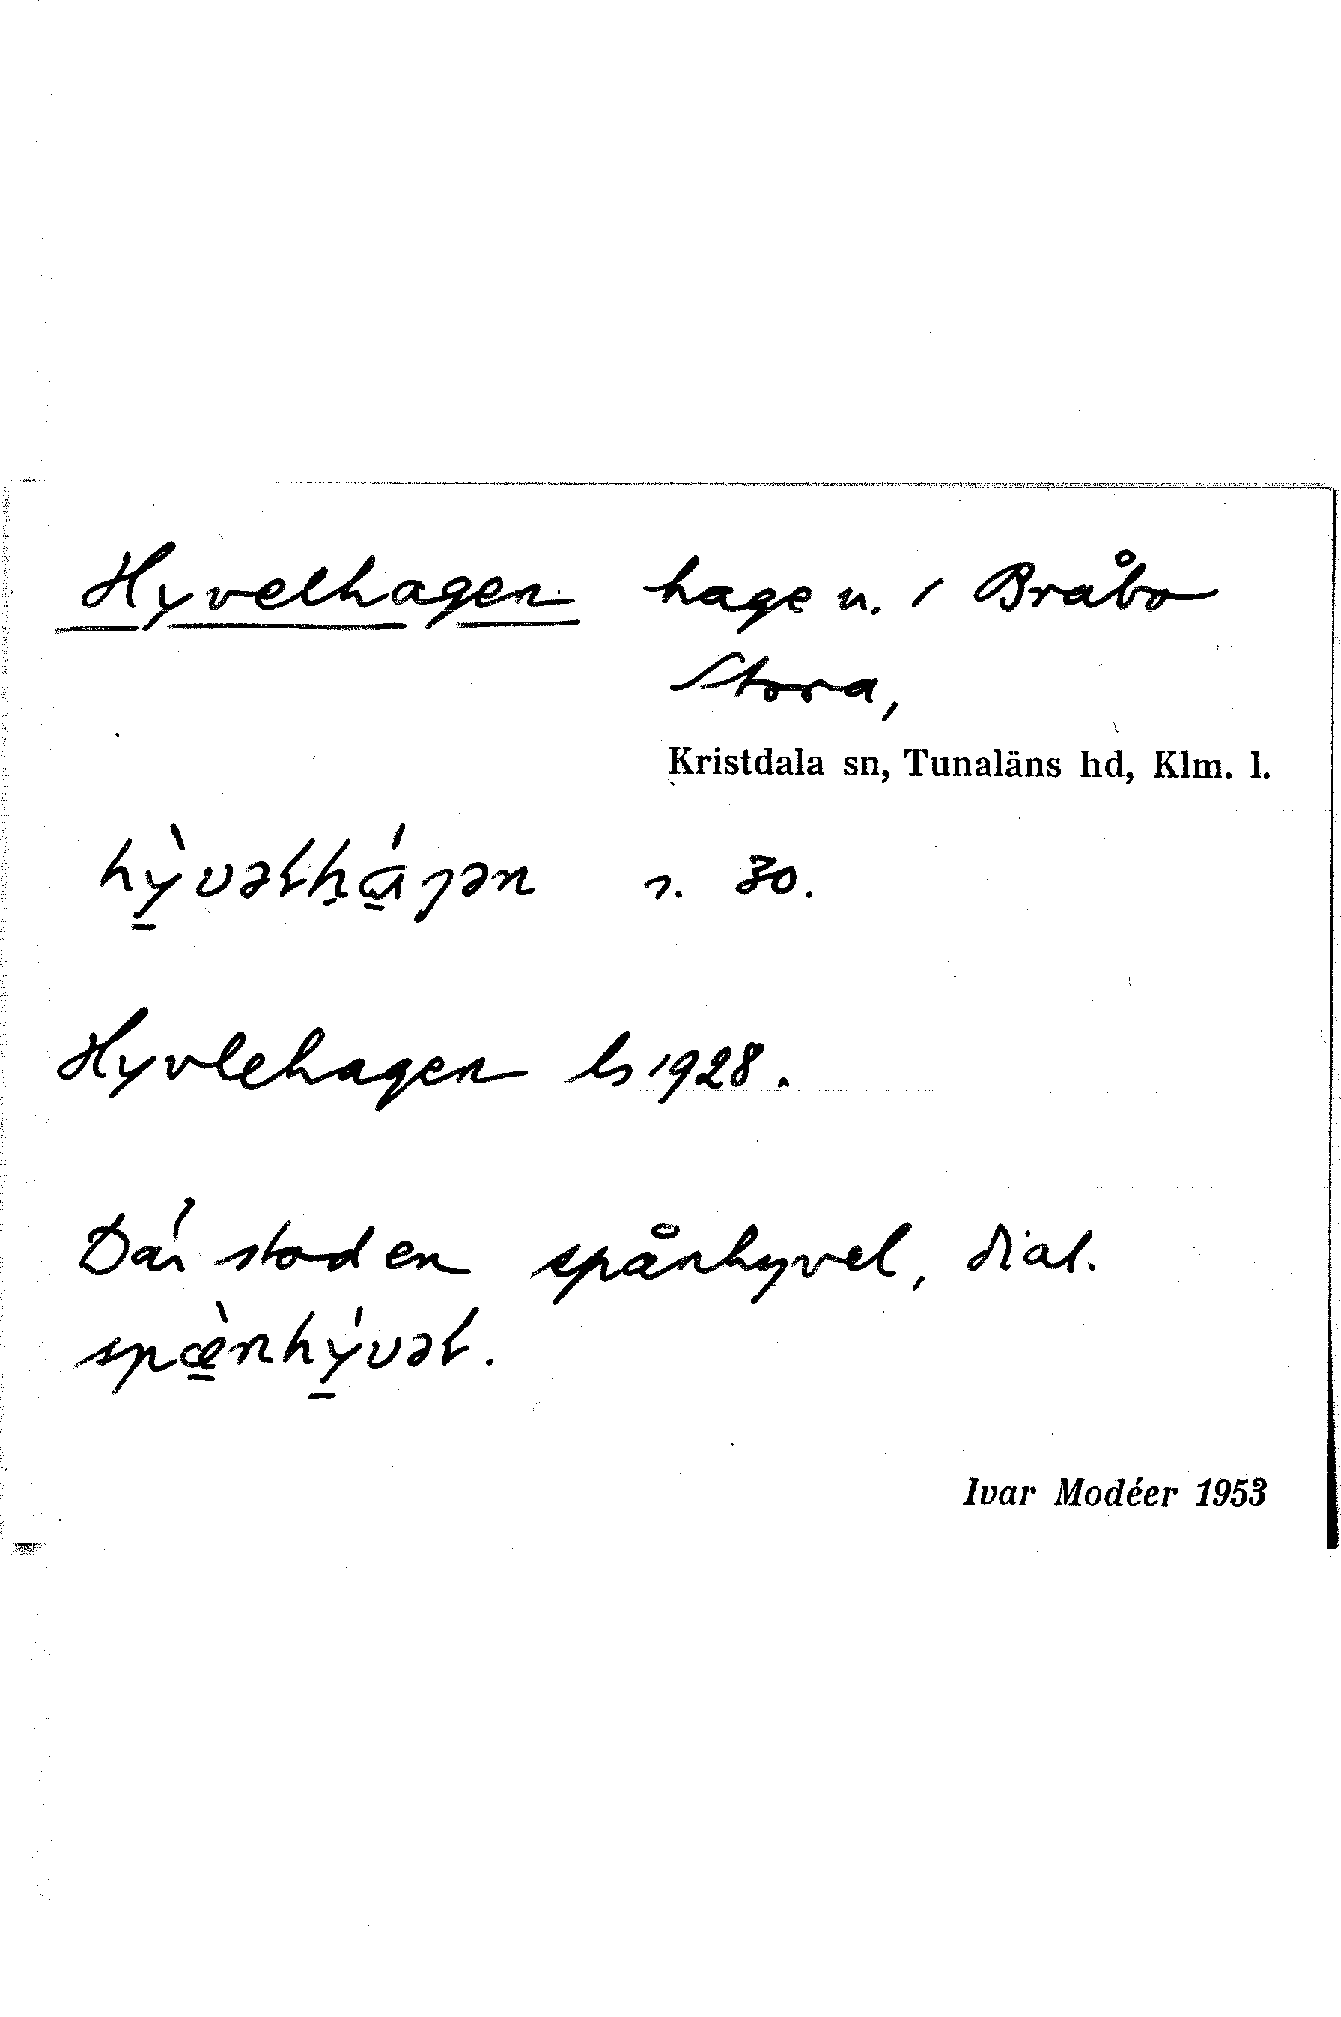 Hyvelhagen hage n. i Bråbo
Stora,
Kristdala sn, Tunaläns hd, Klm. l.
hỳvəłḥɑ́ȷən r. 30.
Hyvlehagen ls 1928.
Där stod en spånhyvel, dial.
spœ̀nhývəł.
Ivar Modéer 1953